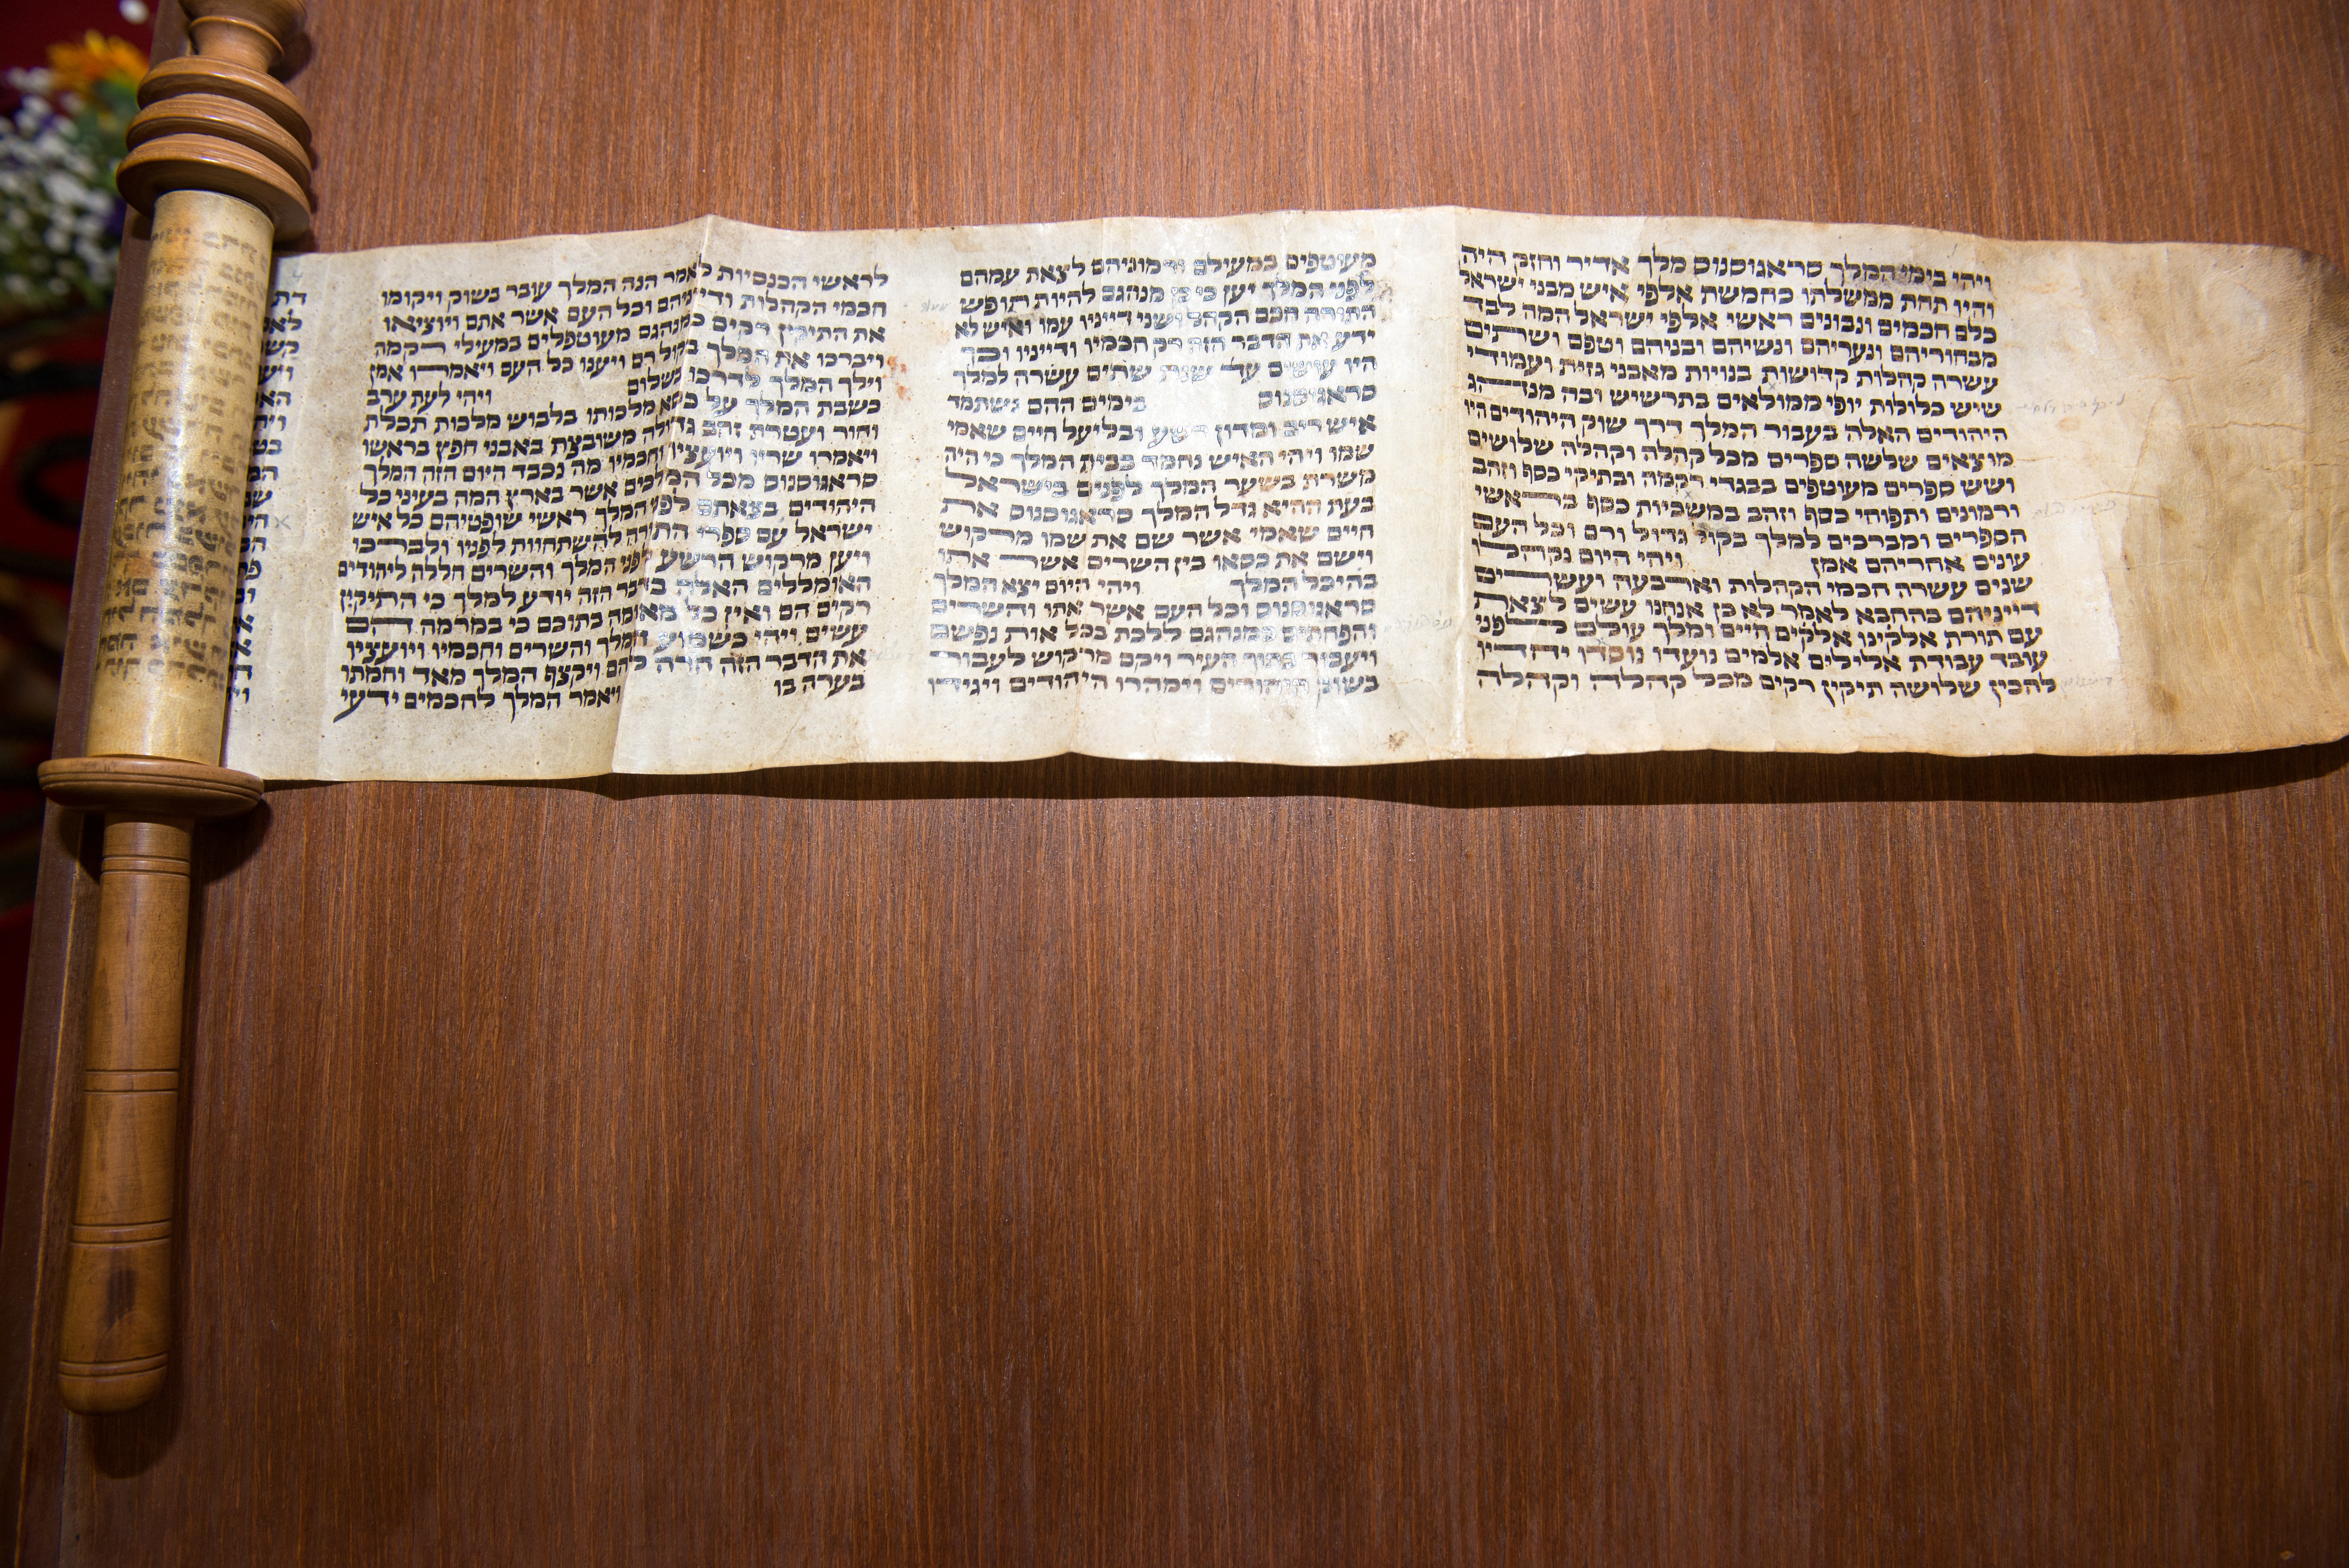 ויהי בימי המלך סראגוסנוס מלך אדיר וחזק היה
והיו תחת ממשלתו כחמשת אלפי איש מבני ישראל
כלם חכמים ונבונים ראשי אלפי ישראל המה לבד
מבחוריהם ונעריהם ונשיהם ובניהם וטפם ושתים
עשרה קהלות קדושות בנויות מאבני גזית ועמודי
שיש כלולות יופי ממולאים בתרשיש ובה מנהג
היהודים האלה בעבור המלך דרך שוק היהודים היו
מוצאים שלשה ספרים מכל קהלה וקהלה שלושים
ושש ספרים מעוטפים בבגדי רקמה ובתיקי כסף וזהב
ורמונים ותפוחי כסף וזהב במשביות כסף בראשי
הספרים ומברכים למלך בקול גדול ורם וכל העם
עונים אחריהם אמן ויהי היום נקהלו
שנים עשרה חכמי הקהלות וארבעה ועשרים
דייניהם בהחבא לאמר לא כן אנחנו עשים לצאת
עם תורת אלקינו אלקים חיים ומלך עולם לפני
עובד עבודת אלילים אלמים נועדו נוסדו יחדיו
להכין שלושה תיקין רקים מכל קהלה וקהלה
מעוטפים במעילם ורמוניהם לצאת עמהם
לפני המלך יען כי כן מנהגם להיות תופש
התורה חכם הקהל ושני דייניו עמו ואיש לא
ידע את הדבר הזה רק חכמיו ודייניו וכך
היו עושים עד שנת שתים עשרה למלך
סראגוסנוס בימים ההם נשתמד
איש ריב ומדון רשע ובליעל חיים שאמי
שמו ויהי האיש נחמד בבית המלך כי היה
משרת בשער המלך לפנים בישראל
בעת ההיא גדל המלך סראגוסנוס את
חיים שאמי אשר שם את שמו מרקוש
וישם את כסאו בין השרים אשר אתו
בהיכל המלך ויהי היום יצא המלך
סראגוסנוס וכל העם אשר אתו והשרים
והפחתים כמנהגם ללכת בכל אות נפשם
ויעבור בתוך העיר ויקם מרקוש לעבור
בשוק היהודים וימהרו היהודים ויגידו
לראשי הכנסיות לאמר הנה המלך עובר בשוק ויקומו
חכמי הקהלות ודייניהם וכל העם אשר אתם ויוציאו
את התיקין רקים כמנהגם מעוטפלים במעילי רקמה
ויברכו את המלך בקול רם ויענו כל העם ויאמרו אמן
וילך המלך לדרכו בשלום ויהי לעת ערב
כשבת המלך על כסא מלכותו בלבוש מלכות תכלת
וחור ועטרת זהב גדולה משובצת באבני חפץ בראשו
ויאמרו שריו ויועציו וחכמיו מה נכבד היום הזה המלך
סראגוסנוס מכל המלכים אשר בארץ המה בעיני כל
היהודים בצאתם לפני המלך ראשי שופטיהם כל איש
ישראל עם ספרי התורה להשתחוות לפניו ולברכו
ויען מרקוש הרשע לפני המלך והשרים חללה ליהודים
האומללים האלה בדבר הזה יודע למלך כי התיקין
רקים הם ואין כל מאומה בתוכם כי במרמה הם
עשים ויהי כשמוע המלך והשרים וחכמיו ויועציו
את הדבר הזה חרה להם ויקצף המלך מאד וחמתו
בערה בו ויאמר המלך לחכמים ידעי